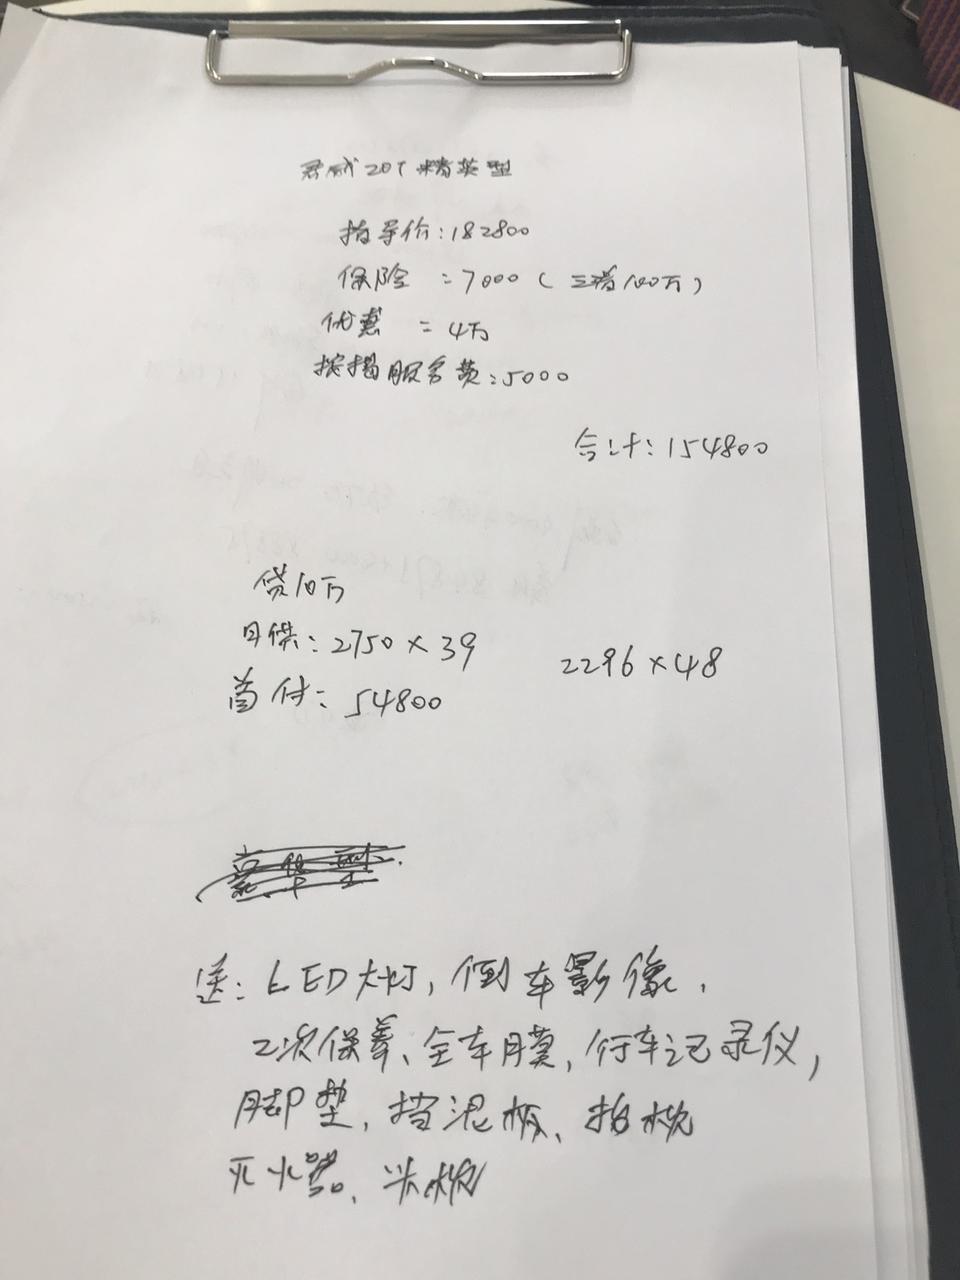 君威20T精英型
指导价:182800
保险 =7000(三者100万)
优惠 =4万
按揭服务费:5000
合计:154800
贷10万
月供:2750×39
2296×48
首付:54800
送:LED大灯,倒车影像.
2次保养、全车膜,行车记录仪,
脚垫,挡泥板、抱枕
灭火器、头枕